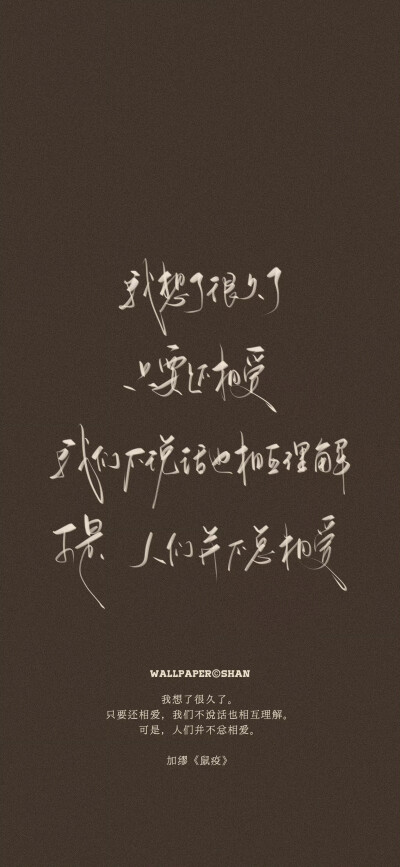 我想了很久了
只要还相爱
我们不说话也相互理解
可是 人们并不总相爱
WALLPAPER©SHAN
我想了很久了。
只要还相爱，我们不说话也相互理解。
可是，人们并不总相爱。
加缪《鼠疫》